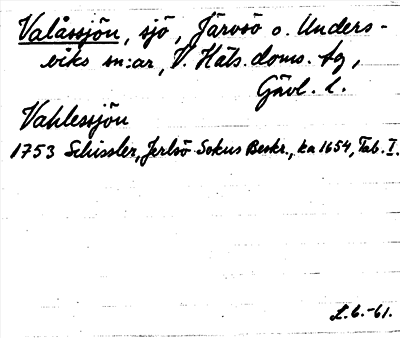 Valåssjön, sjö, Järvsö o. Unders-
viks sn:ar, V. Häls. doms. tg,
Gävl. l.
Vahlessjön
1753 Schissler, Jerlsö Sokus Beskr., ka 1654, Tab. I.
L.6.-61.